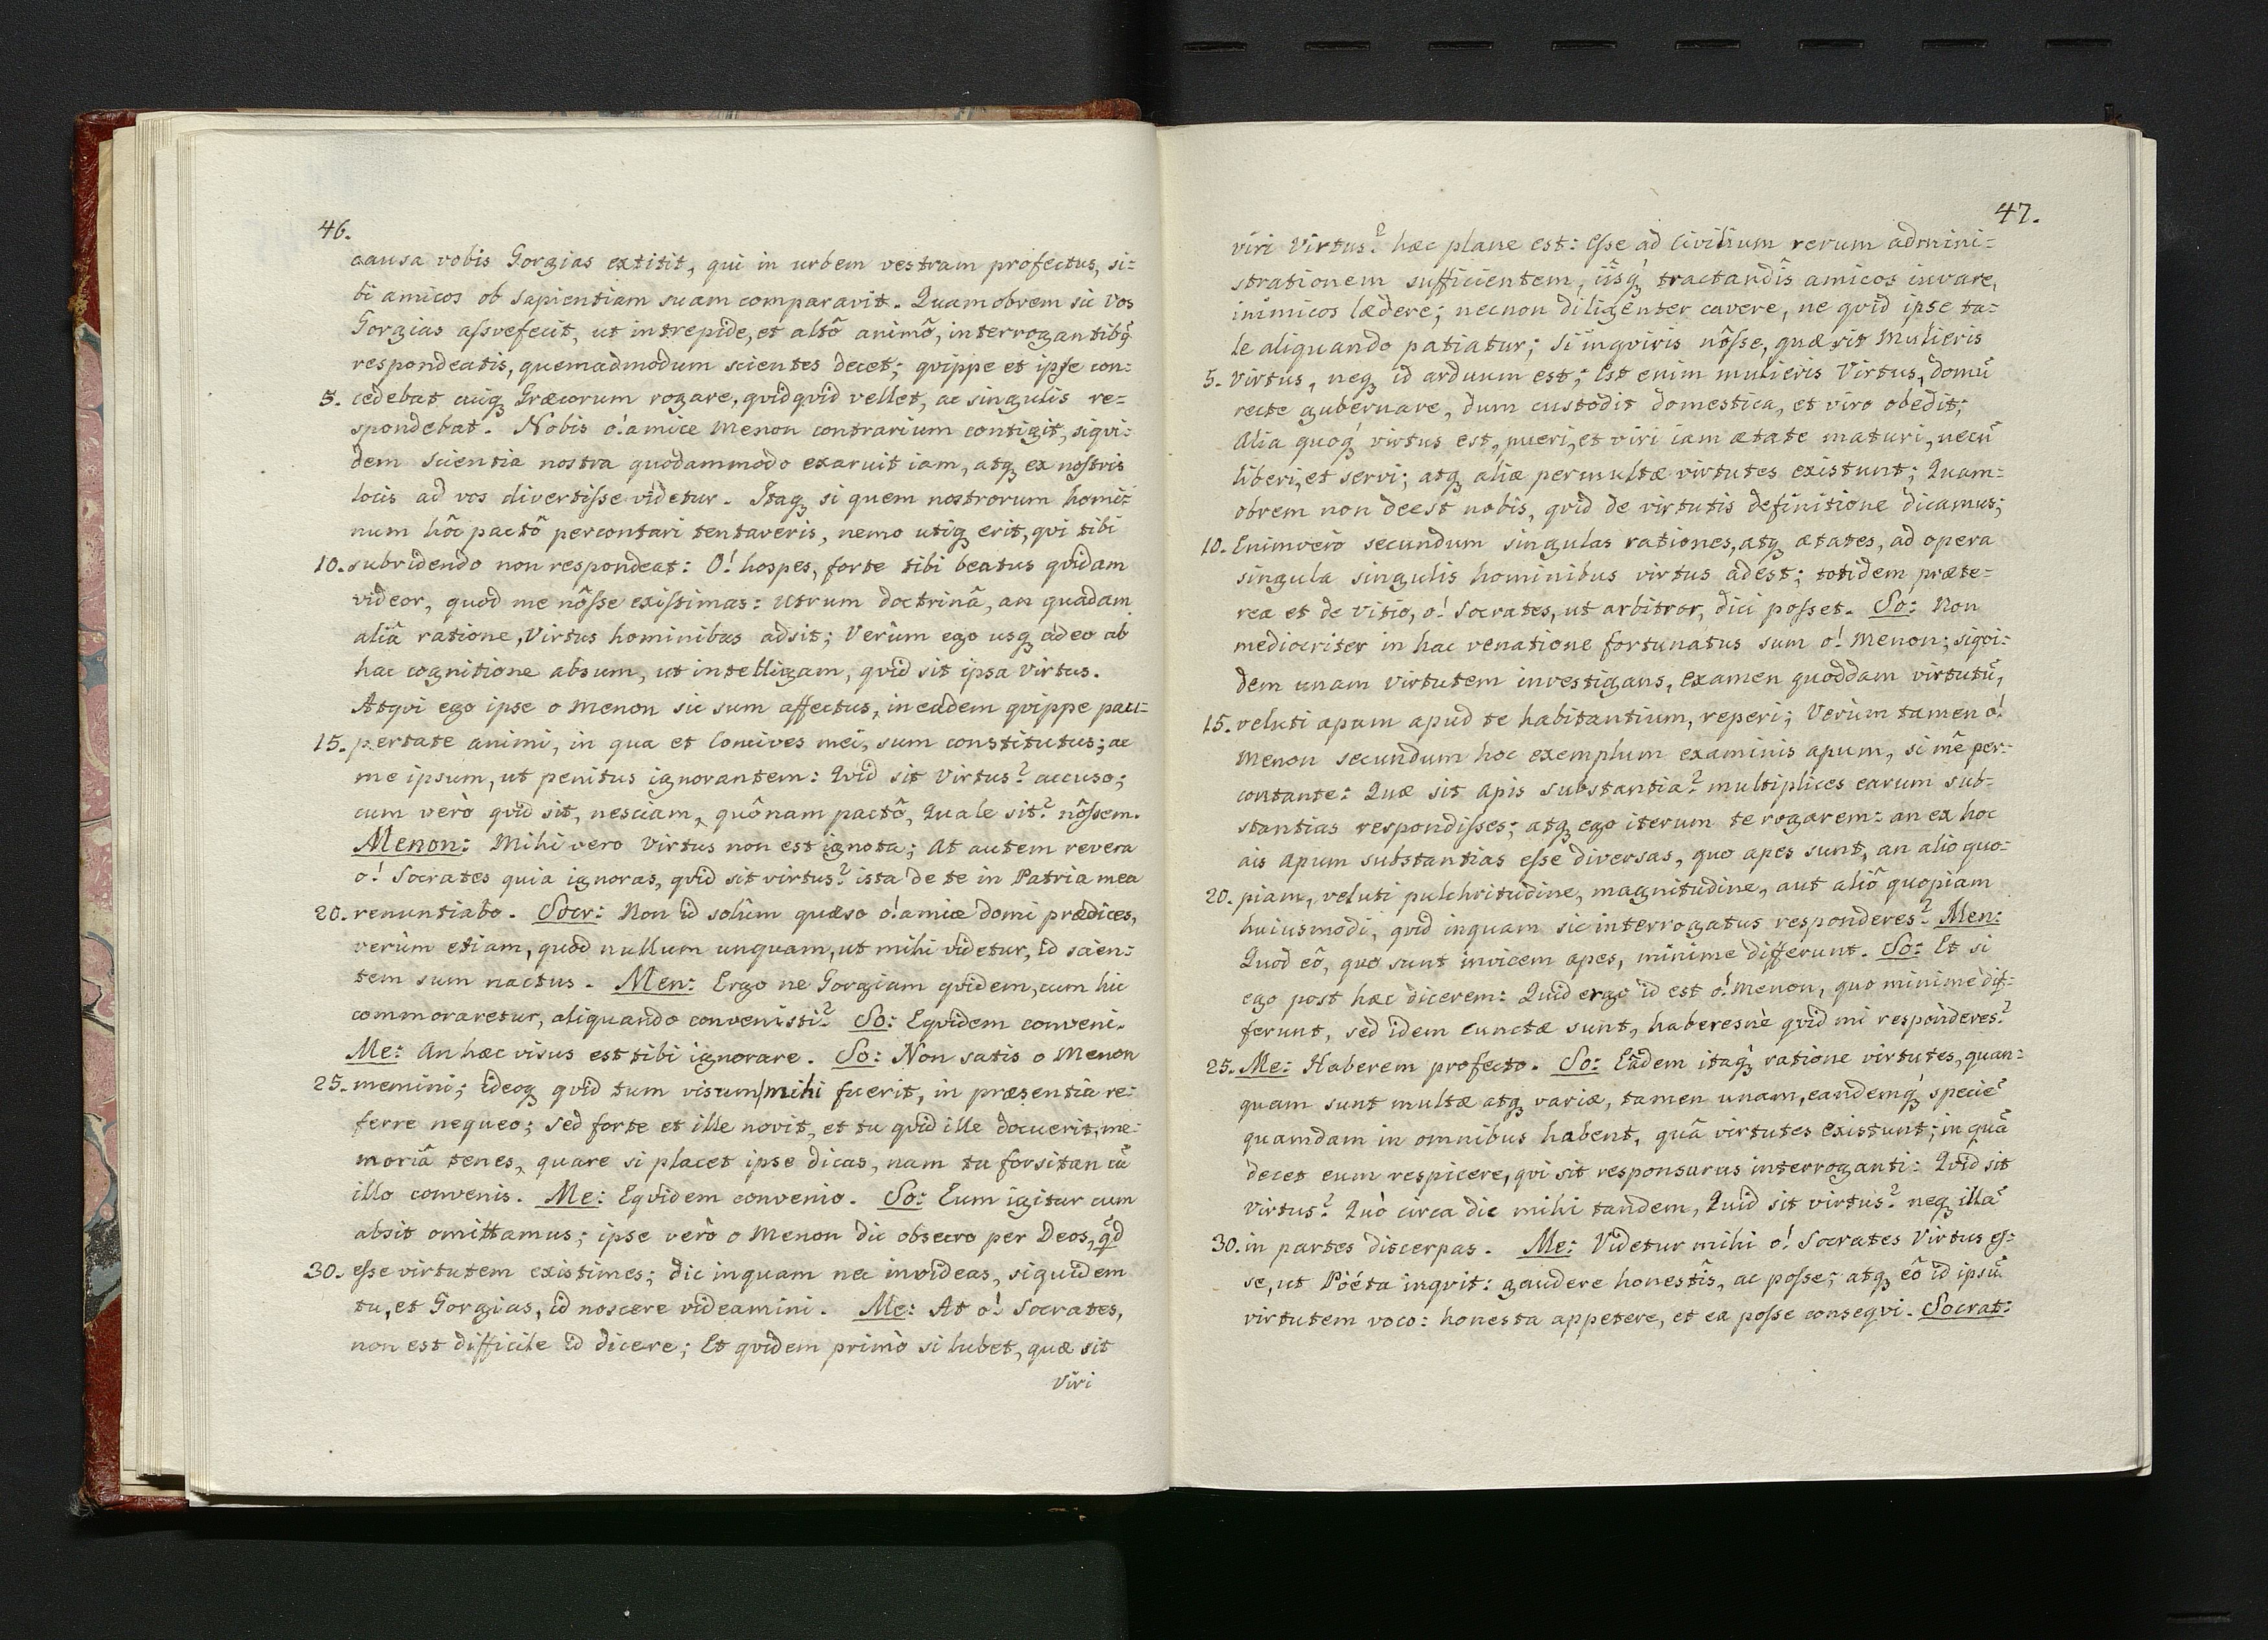 46.
causa vobis Gorgias extitit, qui in urbem vestram profectus, si=
bi amicos ob sapientiam suam comparavit. Quamobrem sic vos
Gorgias aſsvefecit, ut intrepide, et altô animô, interrogantibq̃
respondeatis, quemadmodum scientes decet; qvippe et ipſe con:
5. cedebat cuiqꝫ Græcorum rogare, qvidqvid vellet, ac singulis re=
spondebat. Nobis o! amice Menon contrarium contigit, siqvi:
dem scientia nostra quodammodo exaruit iam, atqꝫ ex noſtris
locis ad vos divertiſse videtur. Itaqꝫ si quem nostrorum homi=
num hôc pactô percontari tentaveris, nemo utiqꝫ erit, qvi tibi
10. subridendo non respondeat: O! hospes, forte tibi beatus qvidam
videor, quod me nôſse exiſtimas: utrum doctrinâ, an quadam
aliâ ratione, Virtus hominibus adsit; Verùm ego usqꝫ adeo ab
hac cognitione absum, ut intelligam, qvid sit ipsa virtus.
Atqvi ego ipse o Menon sic sum affectus, in eadem qvippe pau=
15. pertate animi, in qua et Concives mei, sum constitutus; ac
me ipsum, ut penitus ignorantem: Qvid sit virtus? accuso;
cum verò qvid sit, nesciam, quônam pactô, Quale sit? nôſsem.
Menon: Mihi vero Virtus non est ignota; At autem revera
o! Socrates quia ignoras, qvid sit virtus? ista de te in Patria mea
20. renuntiabo. Socr: Non id solùm quæso o! amice domi prædices,
verùm etiam, quod nullum unquam, ut mihi videtur, id scien:
tem sum nactus. Men: Ergo ne Gorgiam qvidem, cum hic
commoraretur, aliquando convenisti? So: Eqvidem conveni.
Me: An hæc visus est tibi ignorare. So: Non satis o Menon
25. memini; ideoqꝫ qvid tum visum/mihi fuerit, in præsentia re:
ferre nequeo; sed forte et ille novit, et tu qvid ille docuerit, me:
moriâ tenes, quare si placet ipse dicas, nam tu forsitan cũ
illo convenis. Me: Eqvidem convenio. So: Eum igitur cum
absit omittamus; ipse verò o Menon dic obsecro per Deos, qd̃
30. eſse virtutem existimes; dic inquam nec invideas, siquidem
tu, et Gorgias, id noscere videamini. Me: At o! Socrates,
non est difficile id dicere; Et qvidem primò si lubet, quæ sit
Viri
47.
viri Virtus? hæc plane est: Eſse ad Civilium rerum admini=
strationem sufficientem, iîsqꝫ́ tractandîs amicos iuvare,
inimicos lædere; necnon diligenter cavere, ne qvid ipse ta=
le aliquando patiatur; si inqviris nôſse, quæ sit Mulieris
5. Virtus, neqꝫ id arduum est; Est enim mulieris Virtus, domũ
recte gubernare, dum custodit domestica, et viro obedit;
Alia quoqꝫ́ virtus est, pueri, et viri iam ætate maturi, necũ
liberi, et servi; atqꝫ aliæ permultæ virtutes existunt; Quam=
obrem non deest nobis, qvid de virtutis definitione dicamus;
10. Enimvero secundum singulas rationes, atqꝫ ætates, ad opera
singula singulis hominibus virtus adest; totidem præte=
rea et de vitio, o! Socrates, ut arbitror, dici poſset. So: Non
mediocriter in hac venatione fortunatus sum o! Menon; siqvi:
dem unam virtutem investigans, examen quoddam virtutũ,
15. veluti apum apud te habitantium, reperi; Verùm tamen o!
Menon secundum hoc exemplum examinis apum, si mê per=
contante: Quæ sit Apis substantia? multiplices earum sub=
stantias respondiſses; atqꝫ ego iterum te rogarem: an ex hoc
ais Apum substantias eſse diversas, quo apes sunt, an alio quo=
20. piam, veluti pulchritudine, magnitudine, aut aliô quopiam
huiusmodi, qvid inquam sic interrogatus responderes? Men:
Quod eô, quo sunt invicem apes, minime differunt. So: Et si
ego post hæc dicerem: Quid ergo id est o! Menon, quo minimè dif=
ferunt, sed idem cunctæ sunt, haberesnè qvid mi responderes?
25. Me: Haberem profecto. So: Eâdem itaqꝫ́ ratione virtutes, quan=
quam sunt multæ atqꝫ variæ, tamen unam, eandemqꝫ́ speciẽ
quamdam in omnibus habent, quâ virtutes existunt; in quã
decet eum respicere, qvi sit responsurus interroganti: Qvid sit
virtus? Quò circa dic mihi tandem, Quid sit virtus? neqꝫ illã
30. in partes discerpas. Me: Videtur mihi o! Socrates Virtus eſ=
se, ut Poéta inqvit: gaudere honestîs, ac poſse; atqꝫ eô id ipsũ
virtutem voco: honesta appetere, et ea poſse conseqvi. Socrat: